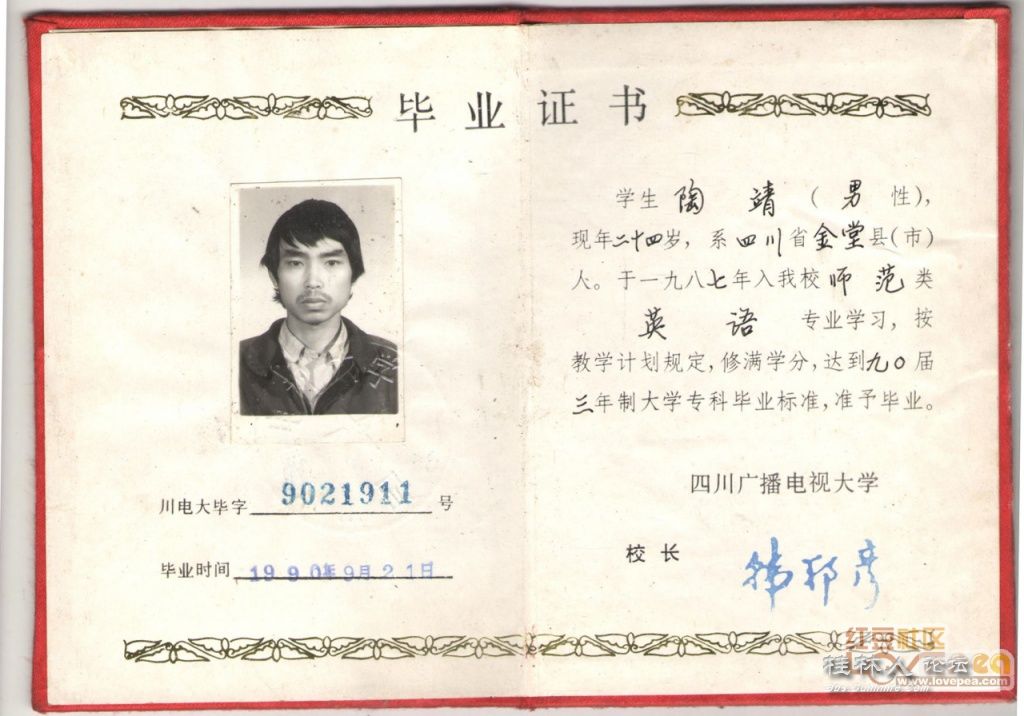 毕业证书
学生 陶 靖 (男 性),
现年二十四岁, 系四川省金堂县(市)
人。于一九八七年入我校师范类
英 语 专业学习, 按
教学计划规定, 修满学分, 达到九〇届
三年制大学专科毕业标准, 准予毕业。
四川广播电视大学
校长 韩邦彦
川电大毕字 9021911 号
毕业时间 1990年9月21日
红豆社区
桂林人论坛
www.lovepea.com